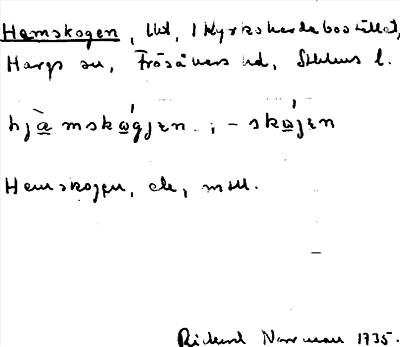 Hemskogen, Ud, 1 Kyrkoherdebostället,
Hargs sn, Frösåkers hd, Sthlms l.
hjà̱mskώ̱gjɛn ; -skώ̱jɛn
Hemskogen, ek, mtll.
Rickard Norrman 1735.